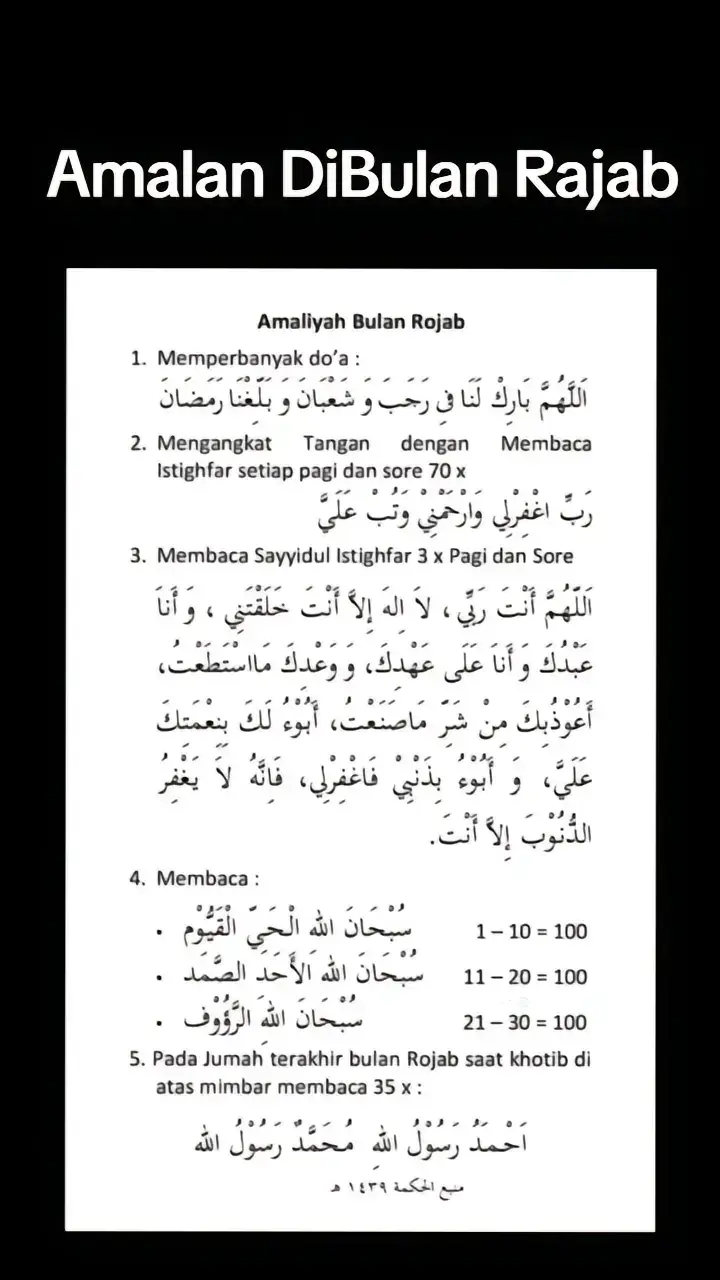 Amalan DiBulan Rajab
Amaliyah Bulan Rojab
1. Memperbanyak do'a :
اَللَّهُمَّ بَارِكْ لَنَا فِي رَجَبَ وَ شَعْبَانَ وَ بَلِّغْنَا رَمَضَانَ
2. Mengangkat Tangan dengan Membaca
Istighfar setiap pagi dan sore 70 x
رَبِّ اغْفِرْلِي وَارْحَمْنِيْ وَتُبْ عَلَيَّ
3. Membaca Sayyidul Istighfar 3 x Pagi dan Sore
اَللّٰهُمَّ أَنْتَ رَبِّي، لاَ اِلهَ إِلاَّ أَنْتَ خَلَقْتَنِي ، وَ أَنَا
عَبْدُكَ وَ أَنَا عَلَى عَهْدِكَ، وَ وَعْدِكَ مَااسْتَطَعْتُ،
أَعُوْذُبِكَ مِنْ شَرِّ مَاصَنَعْتُ، أَبُوْءُ لَكَ بِنِعْمَتِكَ
عَلَيَّ، وَ أَبُوْءُ بِذَنْبِيْ فَاغْفِرْلِي، فَاِنَّهُ لاَ يَغْفِرُ
الذُّنُوْبَ إِلاَّ أَنْتَ.
4. Membaca :
• سُبْحَانَ الله الْحَيِّ الْقَيُّوْم 1 – 10 = 100
• سُبْحَانَ الله الأَحَدِ الصَّمَد 11 – 20 = 100
• سُبْحَانَ اللهِ الرَّؤُوْف 21 – 30 = 100
5. Pada Jumah terakhir bulan Rojab saat khotib di
atas mimbar membaca 35 x :
اَحْمَدُ رَسُوْلُ اللهِ مُحَمَّدٌ رَسُوْلُ الله
منبع الحكمة ١٤٣٩ هـ